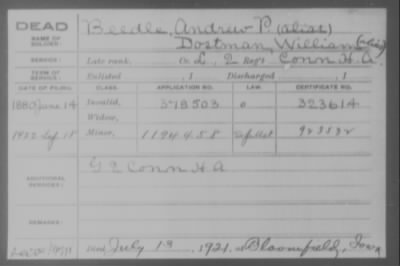 DEAD
NAME OF SOLDIER:
Beedle, Andrew P. (alias)
Dostman, William
SERVICE:
Late rank, Co. L, 2 Reg't Conn H.A.
TERM OF SERVICE:
Enlisted , 1 Discharged , 1
DATE OF FILING. CLASS. APPLICATION NO. LAW. CERTIFICATE NO.
1880 June 14 Invalid, 378503 323614
Widow,
Minor, 1194458
G 2 Conn H A
ADDITIONAL SERVICES:
REMARKS:
Died July 13, 1921, at Bloomfield, Iowa